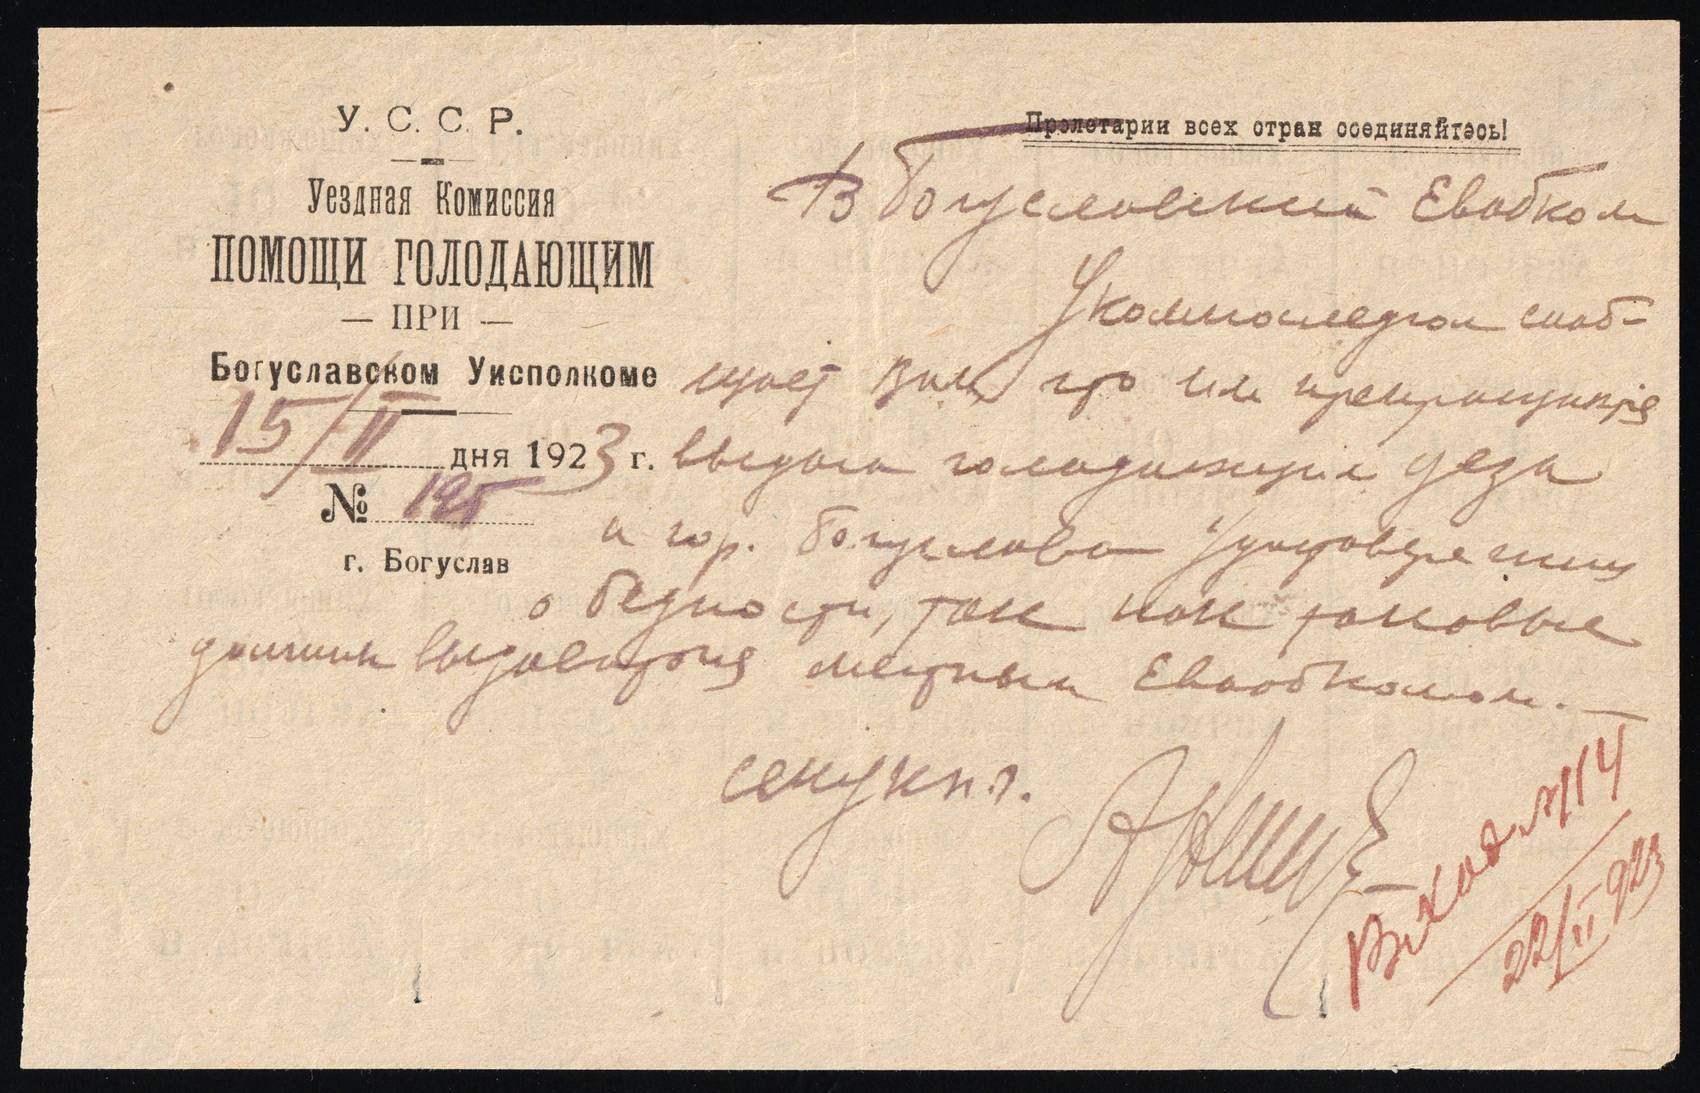 У. С. С. Р.
Уездная Комиссия
ПОМОЩИ ГОЛОДАЮЩИМ
— ПРИ —
Богуславском Уисполкоме
15/II дня 1923 г.
№ 195
г. Богуслав
Пролетарии всех стран соединяйтесь!
В Богуславский Евобком
Укомпоследгол сооб-
щает Вам, что им прекращается
выдача голодающим уезда
и гор. Богуслава Удостоверений
о бедности, так как таковые
должны выдаваться местным Евобкомом. —
Входящ № 114
22/II 923